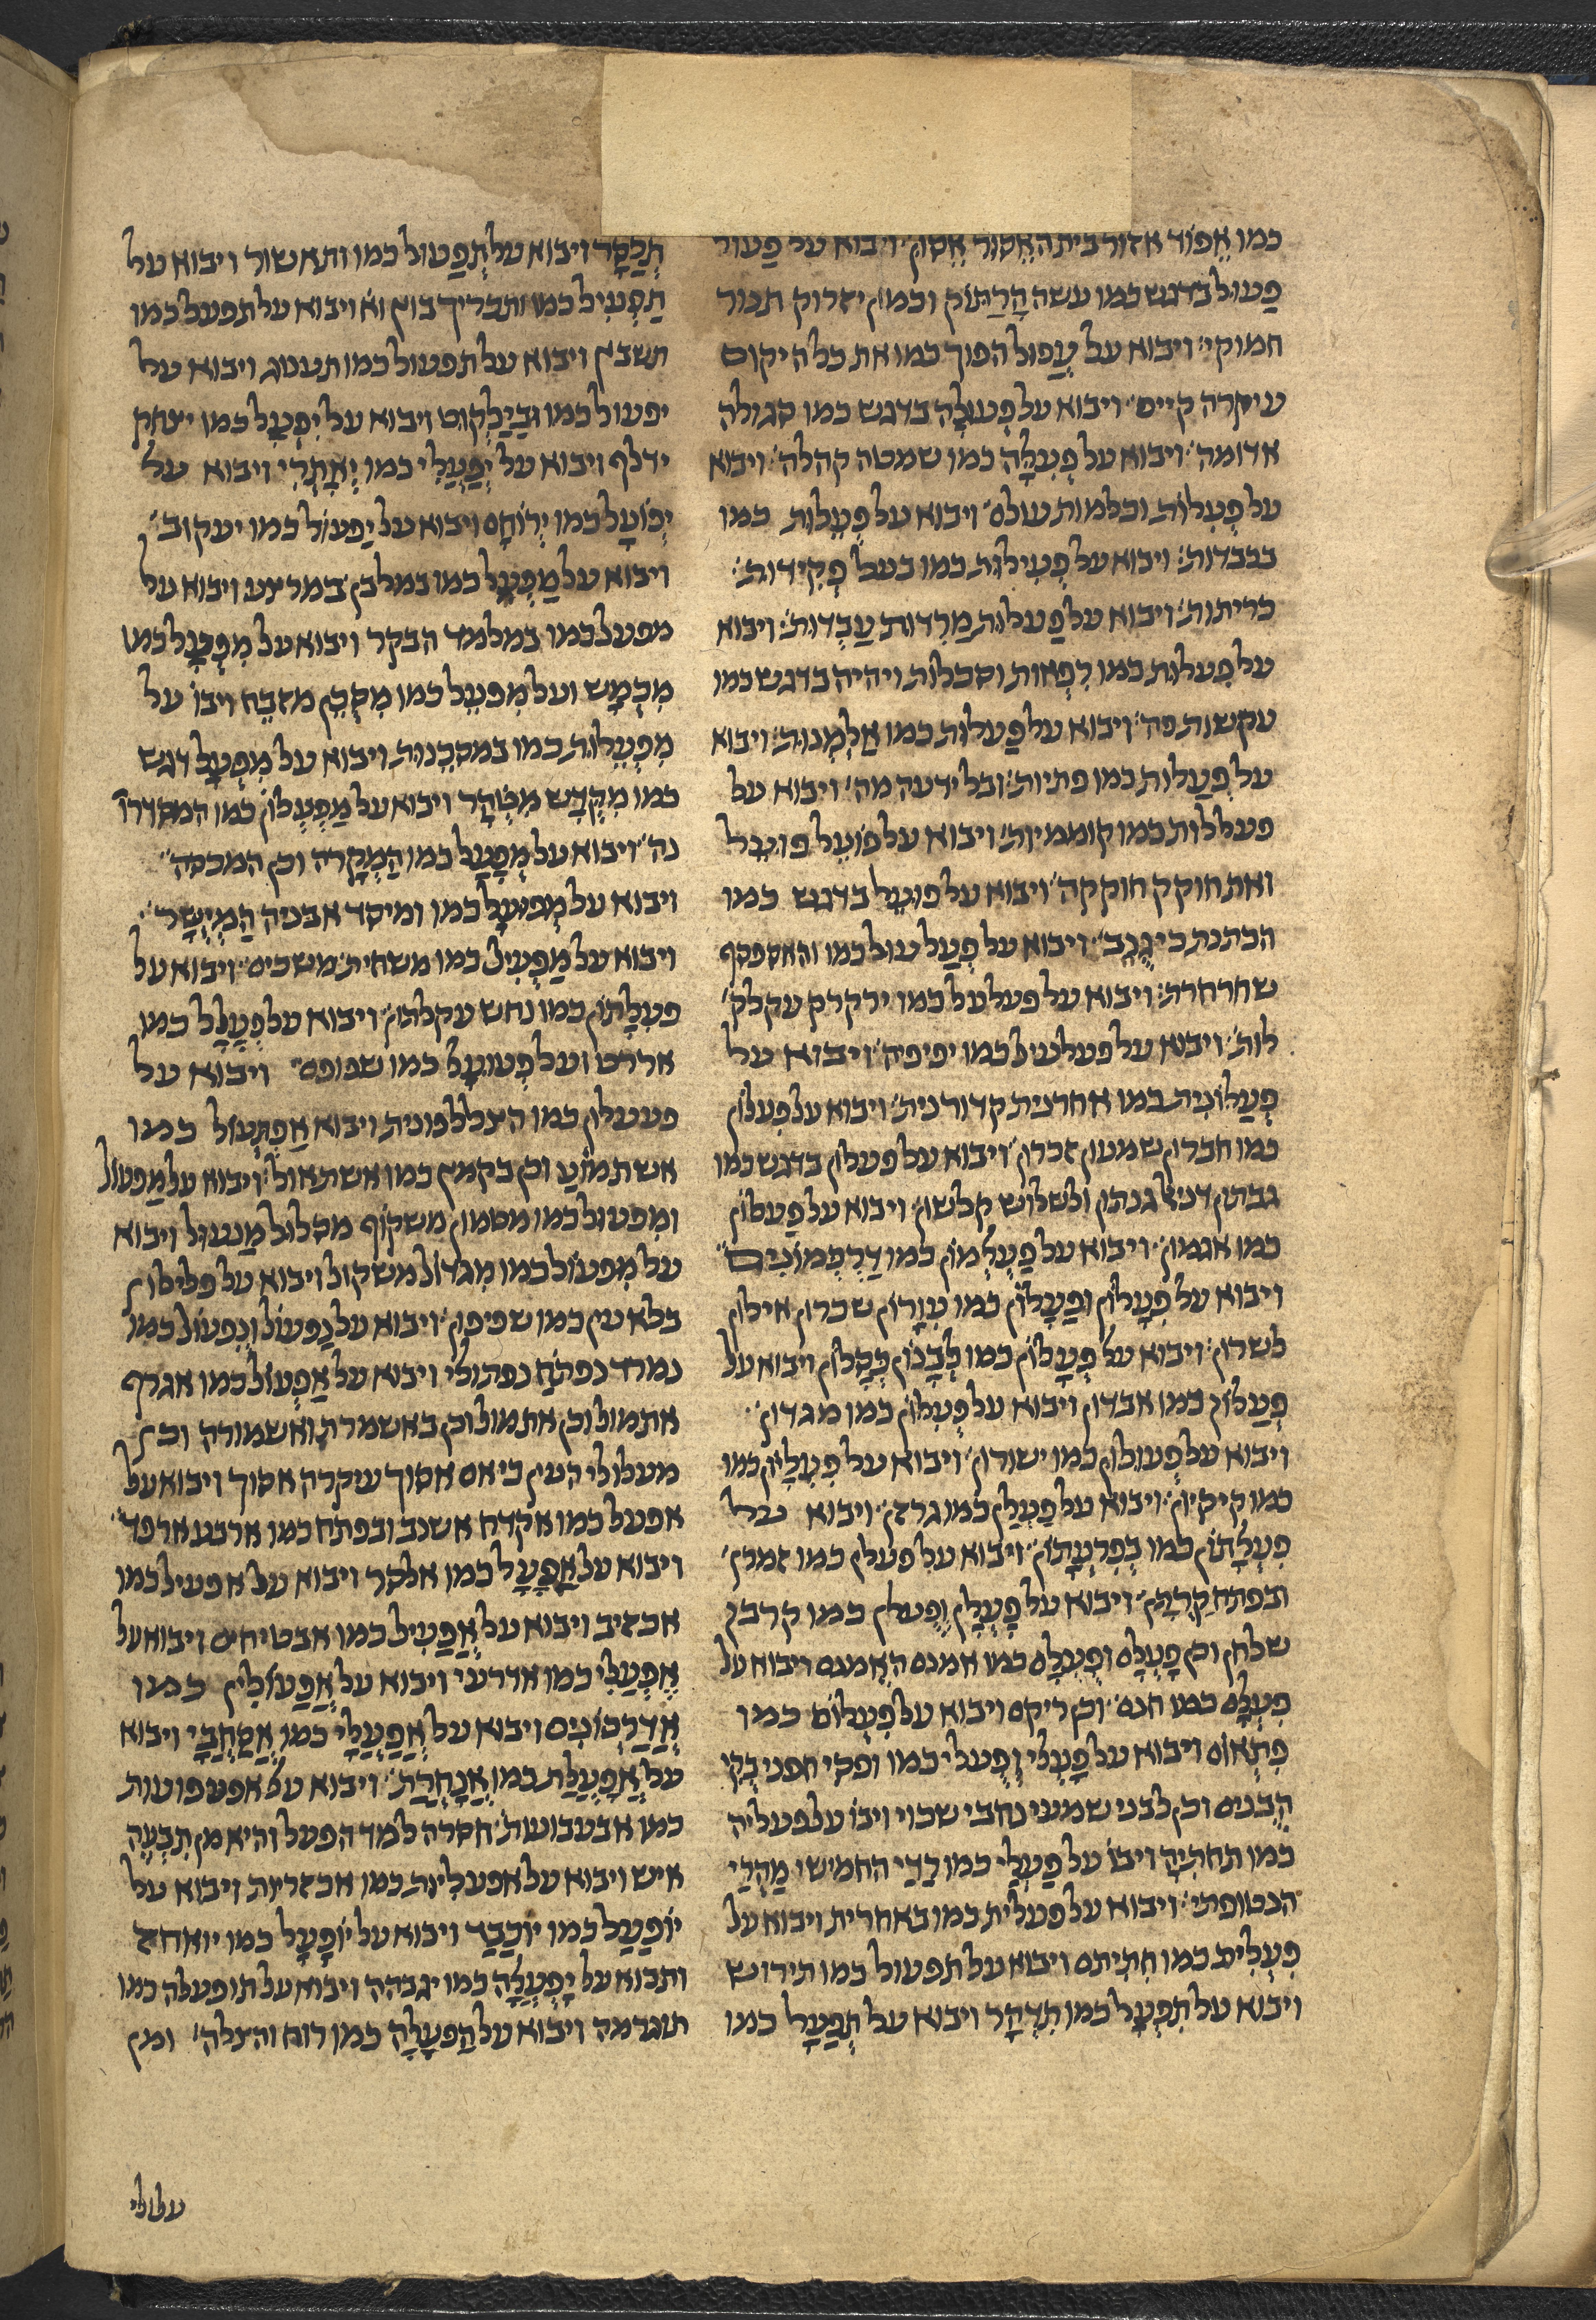 כמו אֵפוֹד אזור בית הָאֵסוּר אֵטוּן ויבוא על פַעוּל
פַעוּל בדגש כמו עשה הָרַתוֹק וכמוך יזרוק תנור
חמוקי׳ ויבוא על עָפוּל הפוך כמו את כל היקום
עיקרה קיים׳ ויבוא על פְעוּלָה בדגש כמו סגולה
אדומה׳ ויבוא על פְעִלָּה כמו שמטה קהלה׳ ויבוא
על פְעִלוּת וכלמות עולם׳ ויבוא על פְעֵלוּת כמו
בכבדות׳ ויבוא על פְעִילוּת כמו בעל פְקִידוּת׳
כריתות׳ ויבוא על פַעלוּת מַרְדוּת עַבְדוּת׳ ויבוא
על פִעלוּת כמו רִפְאוּת וסכלות ויהיה בדגש כמו
עקשות פה׳ ויבוא על פַעלוּת כמו אַלְמְנוּת׳ ויבוא
על פְעַלוּת כמו פתיות׳ ובל ידעה מה׳ ויבוא על
פעללות כמו קוממיות׳ ויבוא על פוֹעֵל פועל
ואת חוקק חוקקה׳ ויבוא על פוּעַל בדגש כמו
הבתנת כי גֻנַב׳ ויבוא על פְעַל עוּל כמו והאספסף
שחרחרת׳ ויבוא על פעלעל כמו ירקרק עקלק׳
לות׳ ויבוא על פעלעל כמו יפיפיה׳ ויבוא על
פְעַלוֹנִית כמו אחרנית קדורנית׳ ויבוא על פִעלוֹן
כמו חברון שמעון זכרון׳ ויבוא על פעלון בדגש כמו
גבתון דמיון גנתון ולשלוש קלשון׳ ויבוא על פַעלוֹן
כמו אגמון׳ ויבוא על פַעְלְמוֹן כמו דַרְכְּמוֹנִים
ויבוא על פִעָלוֹן ופַעָלוֹן כמו עִוָרוֹן שברון אילון
לשרון׳ ויבוא על פְעָלוֹן כמו לְבָנוֹן כְּסָלוֹן ויבוא על
פְעַלוֹן כמו אבדון ויבוא על פְעִלוֹן כמו מגדון׳
ויבוא על פְעוּלוֹן כמו ישורון׳ ויבוא על פִעְלָיוֹן כמו
כמו קִיקָיוֹן׳ ויבוא על פַעְלַן כמו גרזן׳ ויבוא על
פִעְלָתוֹן כמו בְפִרְעָתוֹן׳ ויבוא על פִעלן כמו זמרן׳
ובפתח קִרְתָן׳ ויבוא על פָעְלָן וְפֻעלן כמו קרבן
שלחן וכן פָעְלָם וּפְעִלָּם כמו אמנם הֻאֻמנם ויבוא על
פִעְלָם כמו חנם׳ וכן ריקם ויבוא על פִעְלוֹם כמו
פִתְאוֹם ויבוא על פָעְלִי וְפֻעלי כמו ופסי חפני בֻקִי
הֳבנים וכן לבני שמעי נחבי שכוי ויבו׳ על פעליה
כמו תחתיה ויבו׳ על פַעְלַי כמו רַדַי החמישי מַהְרַי
הנטופתי׳ ויבוא על פעלית כמו באחרית ויבוא על
פִעְלִית כמו חִתִיתם ויבוא על תפעול כמו תירוש
ויבוא על תִפְעָל כמו תִדְהָר ויבוא על תְפַעָל כמו
תְלַסָּר ויבוא על תְפַעוּל כמו ותאשור ויבוא על
תַפְעִיל כמו ותבריך בוץ וא׳ ויבוא על תפעל כמו
תשבץ ויבוא על תפעול כמו תענוג ויבוא על
יפעול כמו וּבַיַלְקוּט ויבוא על יִפְעַל כמו יצחק
ידלף ויבוא על יְפַעְלִי כמו יְאַתְרִי ויבוא על
יְפוֹעָל כמו יְרוֹחָם ויבוא על יַפעוֹל כמו יעקוב׳
ויבוא על מַפְעֵל כמו במלבן במרצע ויבוא על
מפעל כמו במלמד הבקר ויבוא על מִפְעָל כמו
מִכְמָש ועל מִפעֵל כמו מִסְכֵּן מזבֵּח ויבו׳ על
מִפְעֵלוּת כמו במסכֵּנוּת ויבוא על מִפְעָל דגש
כמו מִקְדָּש מִטְּהָר ויבוא על מַפְעְלוֹן כמו המסדרו׳
נה׳ ויבוא על מְפָעֵל כמו הַמְקָרֶה וכן המכסה׳
ויבוא על מְפוּעָל כמו ומיסד אבניה הַמְיֻשָר׳
ויבוא על מַפְעִיל כמו משחית משכים׳ ויבוא על
פעלָתוֹן כמו נחש עקלתון׳ ויבוא על פְעָלָל כמו
אררט ועל פְעוּעָל כמו שפופם׳ ויבוא על
פעעלון כמו הצללפונית ויבוא אַפְתְעוֹל כמו
אשתמוֹעַ וכן בקמץ כמו אשתאול׳ ויבוא על מַפעוֹל
ומִפעוּל כמו מטמון משקוף מסלול מַנעול ויבוא
על מִפעוֹל כמו מִגדוֹל משקול ויבוא על פלילון
בלא עין כמו שפיפון׳ ויבוא על נַפעוֹל וְנִפעוּל כמו
נמרד נפתֹח נפתולי׳ ויבוא על אַפְעוֹל כמו אגרף
אתמול וכן אתמול וכן באשמרת ואשמורה וכן
מעלולי העין כי אם אסוך עיקרה אסוך ויבוא על
אפעל כמו אקדח אשנב ובפתח כמו ארבע ארפד׳
ויבוא על אַפָעָל כמו אלסר ויבוא על אפעיל כמו
אכזיב ויבוא על אֲפַעִיל כמו אבטיחים ויבוא על
אֶפְעְלִי כמו אדרעי ויבוא על אֲפַעוֹלִין כמו
אֲדַרְכּוֹנִים ויבוא על אֲפַעְלַי כמו אֲסַחְבָּי ויבוא
על אֲפָעֲלַת כמו אֲנָחֲרַת׳ ויבוא על אפעפועות
כמו אבעבועות׳ חסרה למד הפעל והיא מן תִבְעֶה
איש ויבוא על אפעלִיוּת כמו אכזריות ויבוא על
יוֹפַעַל כמו יוֹכַבַד ויבוא על יוֹפָעָל כמו יואחז
ותבוא על יָפְעְלָה כמו יגבהה ויבוא על תופעלה כמו
תוגרמה ויבוא על הַפעָלָה כמו רוח והצלה׳ ומן
עלולי